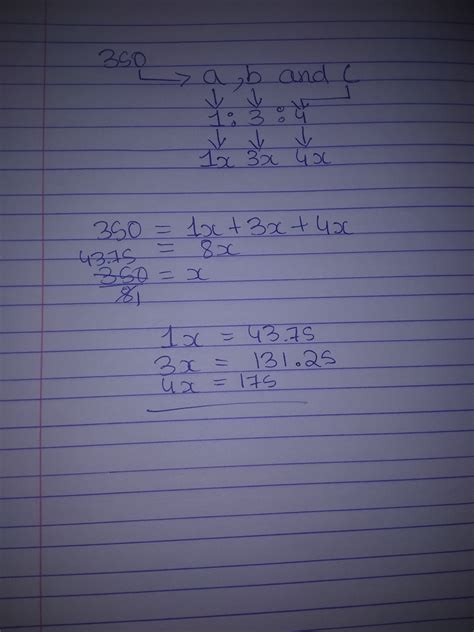 350
a, b and c
1 : 3 : 4
1x 3x 4x
350 = 1x + 3x + 4x
= 8x
43.75
350 = x
8 1
1x = 43.75
3x = 131.25
4x = 175